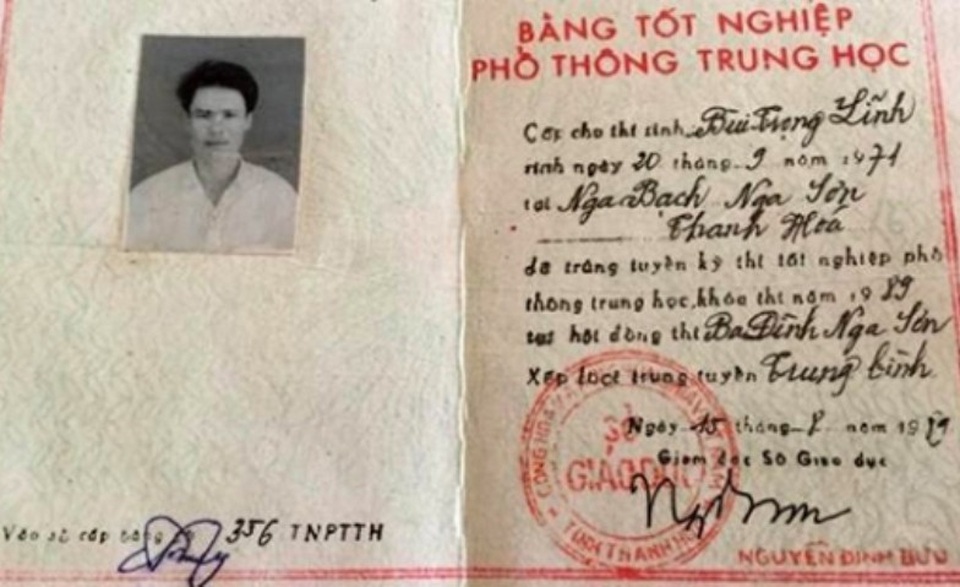 BẰNG TỐT NGHIỆP
PHỔ THÔNG TRUNG HỌC
Cấp cho thí sinh Bùi Trọng Lĩnh
sinh ngày 20 tháng 9 năm 1971
tại Nga Bạch Nga Sơn
Thanh Hoá
đã trúng tuyển kỳ thi tốt nghiệp phổ
thông trung học, khóa thi năm 1989
tại hội đồng thi Ba Đình Nga Sơn
Xếp loại trúng tuyển Trung bình
Ngày 15 tháng 8 năm 1989
Giám đốc Sở Giáo dục
SỞ
GIÁO DỤC
TỈNH THANH HÓA
NGUYỄN ĐÌNH BƯU
Vào sổ cấp bằng 356 TNPTTH